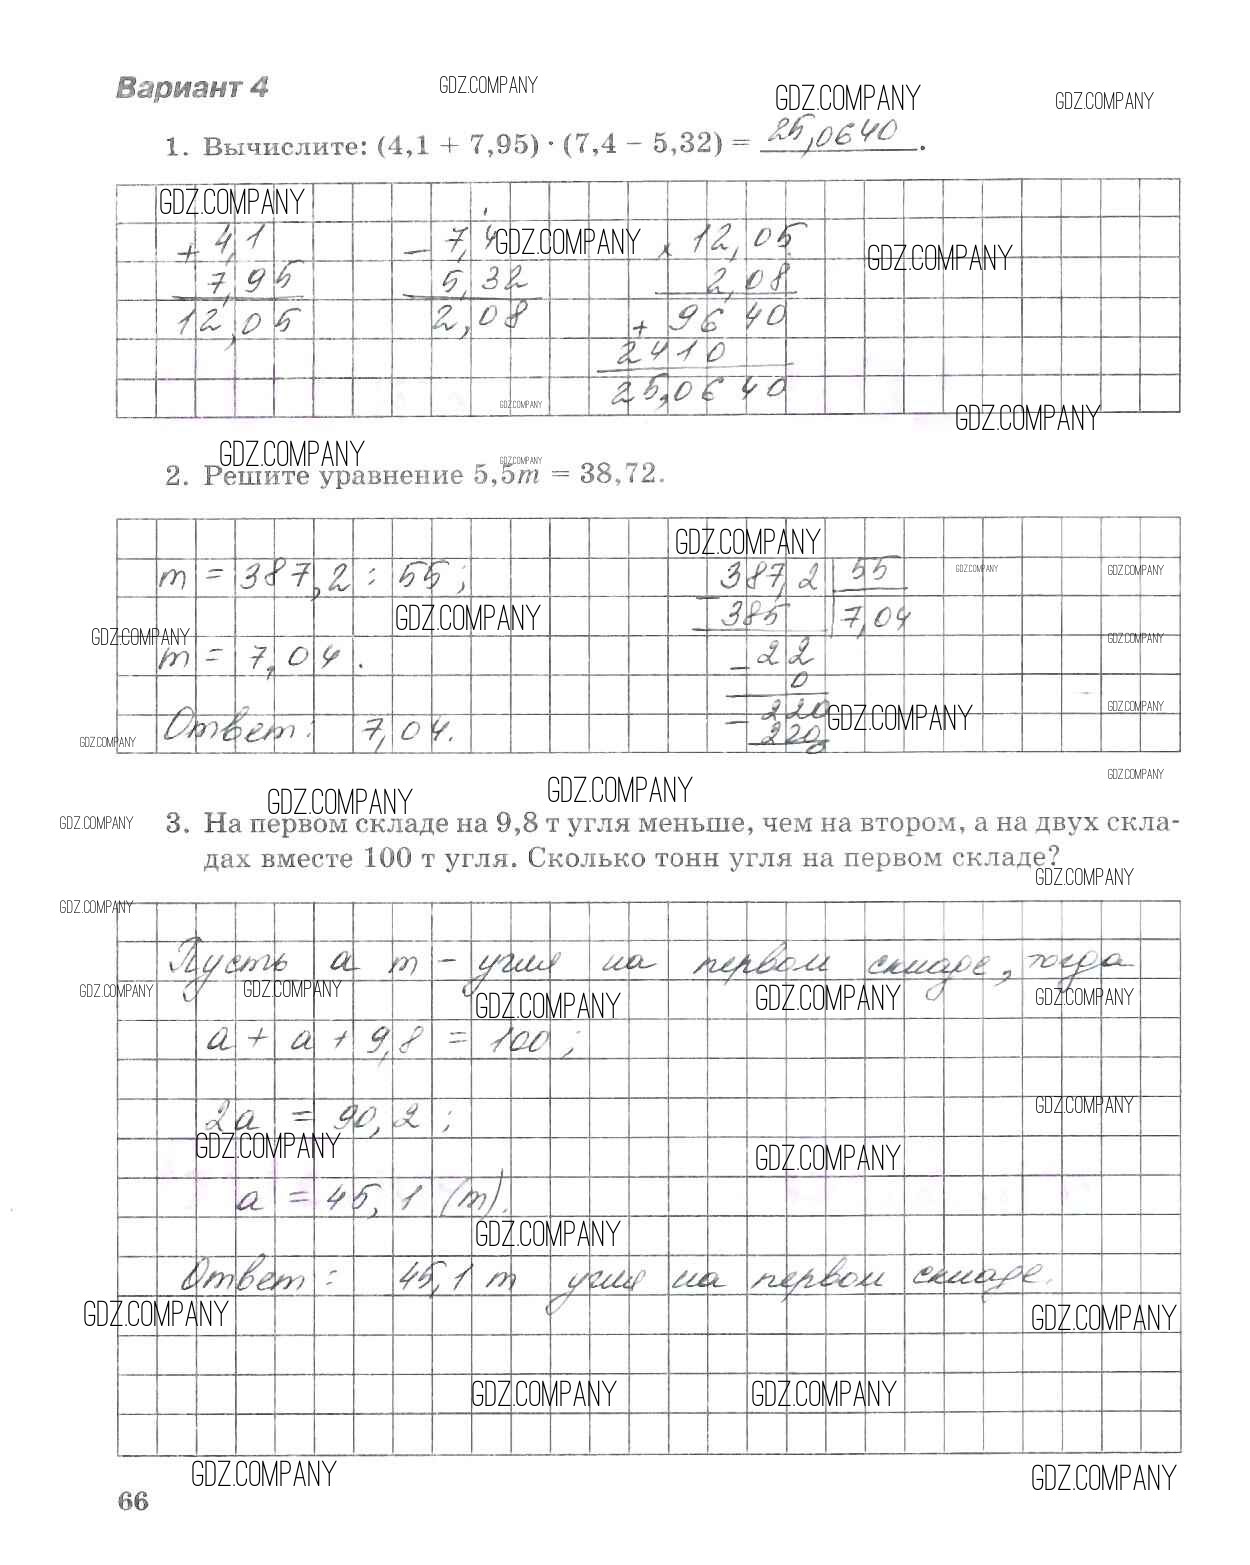 Вариант 4
GDZ.COMPANY
GDZ.COMPANY
GDZ.COMPANY
1. Вычислите: (4,1 + 7,95) · (7,4 − 5,32) = 25,0640.
GDZ.COMPANY
+ 4,1 − 7,4 GDZ.COMPANY × 12,05 GDZ.COMPANY
7,95 5,32 2,08
12,05 2,08 + 9640
2410
25,0640
GDZ.COMPANY
GDZ.COMPANY
GDZ.COMPANY
GDZ.COMPANY
2. Решите уравнение 5,5m = 38,72.
GDZ.COMPANY
m = 387,2 : 55; − 387,2 55 GDZ.COMPANY GDZ.COMPANY
GDZ.COMPANY 385 7,04
GDZ.COMPANY GDZ.COMPANY
m = 7,04. − 22
0
GDZ.COMPANY
Ответ: 7,04. − 220 GDZ.COMPANY
GDZ.COMPANY 220
0
GDZ.COMPANY
GDZ.COMPANY
GDZ.COMPANY
GDZ.COMPANY
3. На первом складе на 9,8 т угля меньше, чем на втором, а на двух скла-
дах вместе 100 т угля. Сколько тонн угля на первом складе?
GDZ.COMPANY
GDZ.COMPANY
Пусть a т – угля на первом складе, тогда
GDZ.COMPANY GDZ.COMPANY GDZ.COMPANY GDZ.COMPANY GDZ.COMPANY
a + a + 9,8 = 100;
GDZ.COMPANY
2a = 90,2;
GDZ.COMPANY GDZ.COMPANY
a = 45,1 (т).
GDZ.COMPANY
Ответ: 45,1 т угля на первом складе.
GDZ.COMPANY GDZ.COMPANY
GDZ.COMPANY GDZ.COMPANY
GDZ.COMPANY GDZ.COMPANY
66